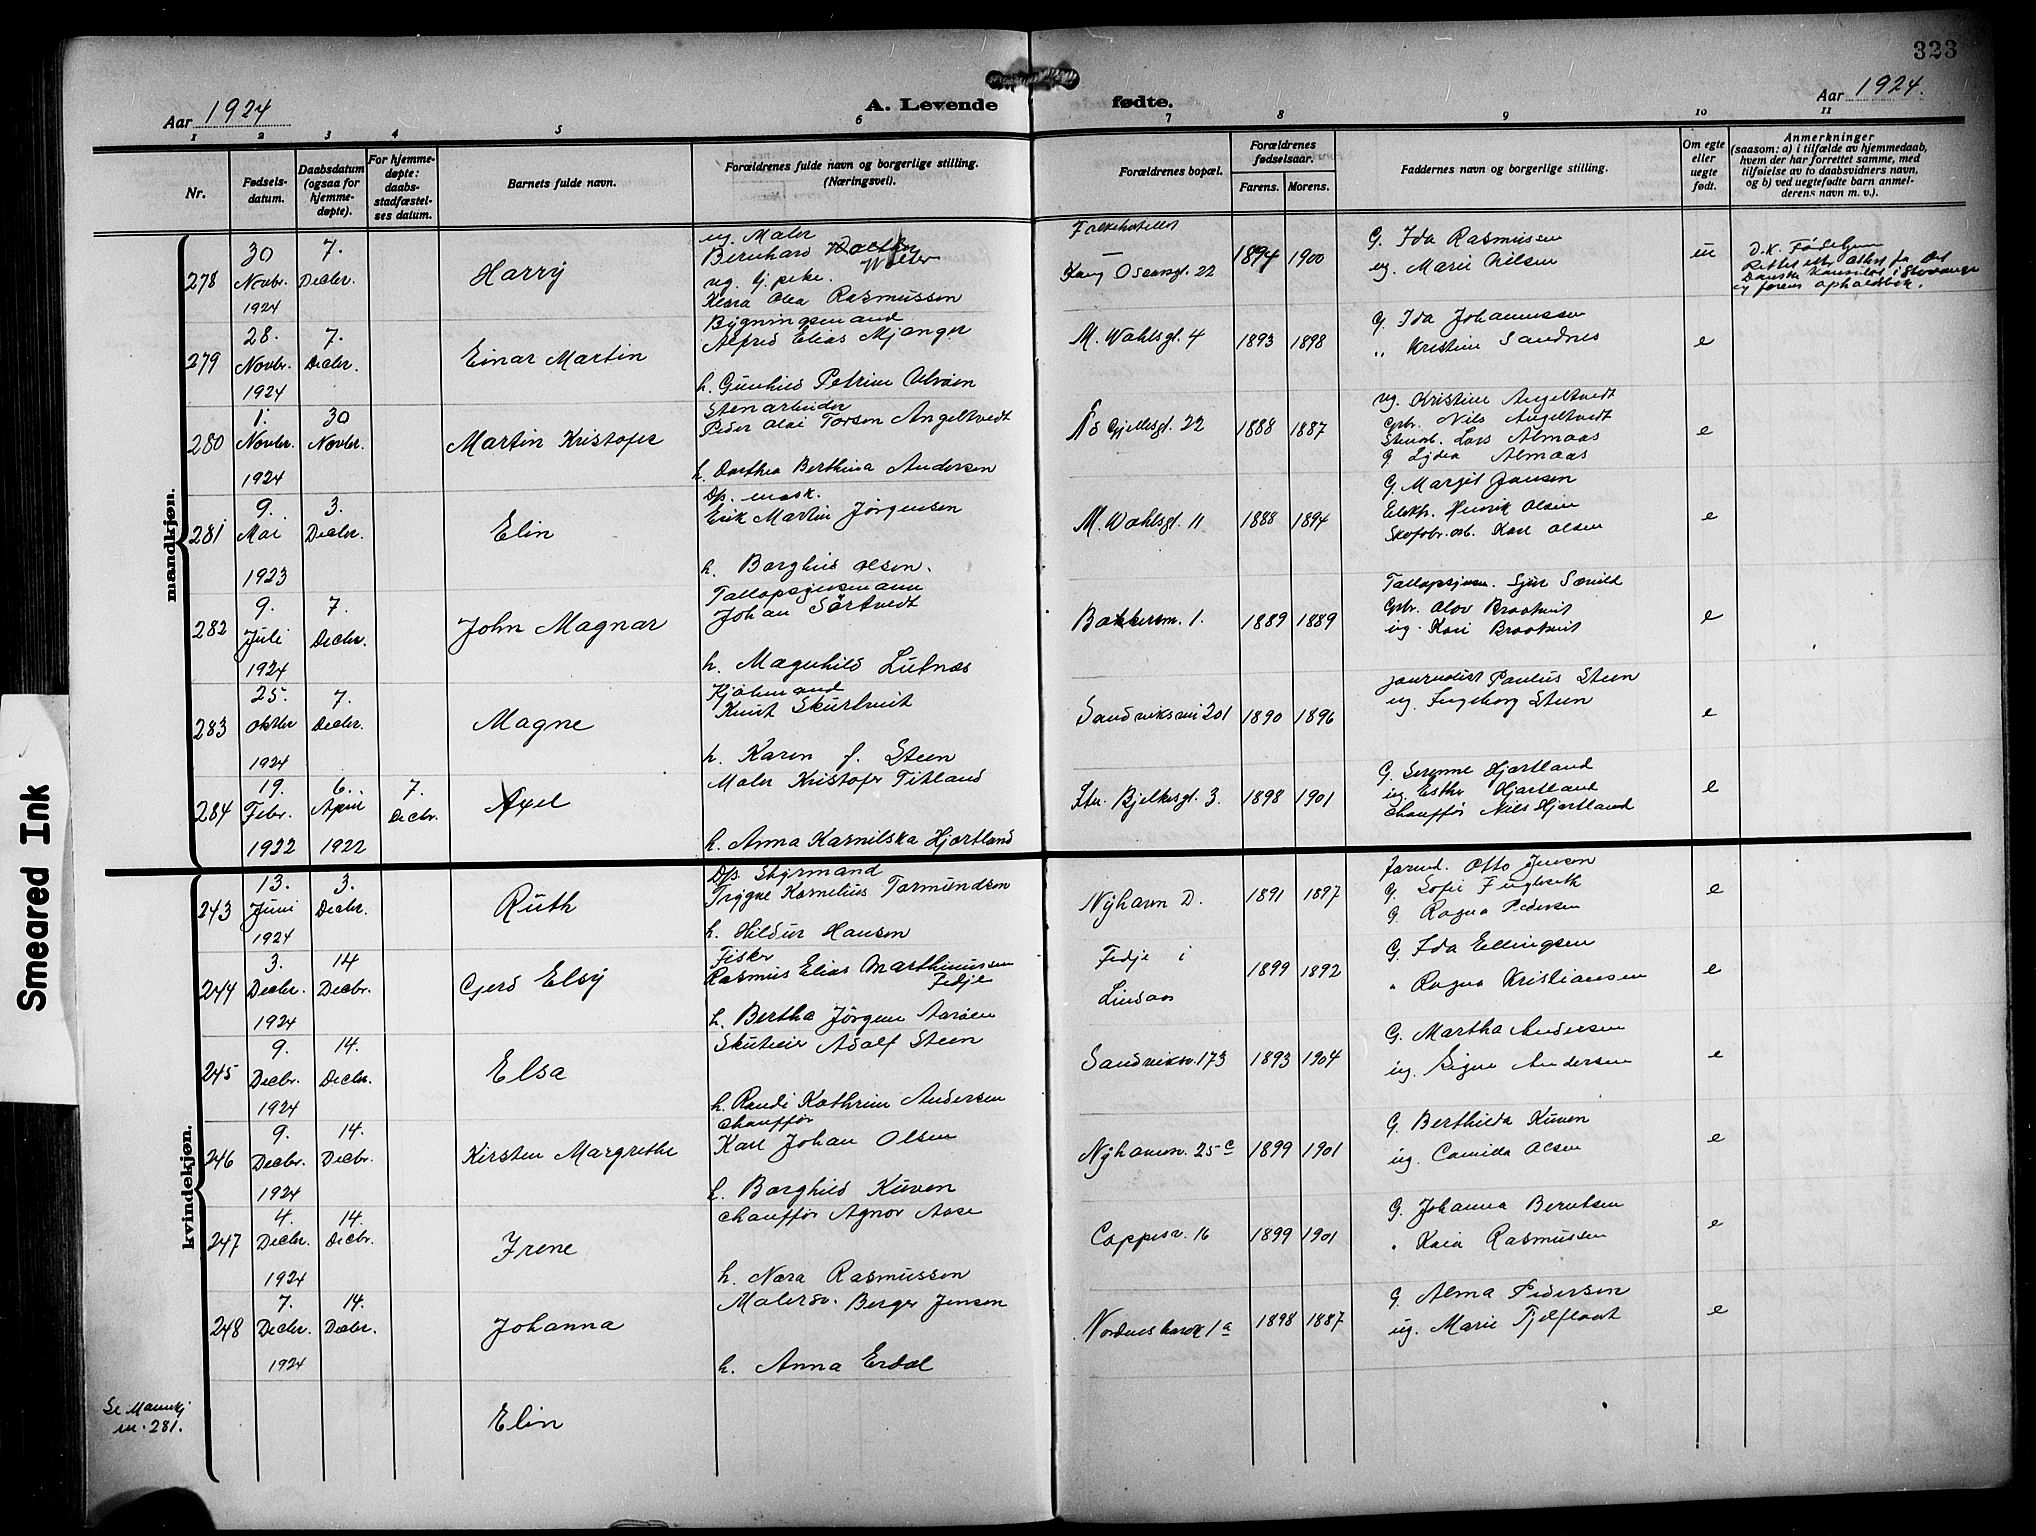 323
Aar 1924
A. Levende fødte.
Aar 1924.
1 2 3 4 5 6 7 8 9 10 11
Nr.
Fødsels-
datum.
Daabsdatum
(ogsaa for
hjemme-
døpte).
For hjemme-
døpte:
daabs-
stadfæstel-
ses datum.
Barnets fulde navn.
Forældrenes fulde navn og borgerlige stilling.
(Næringsvei).
Forældrenes bopæl.
Forældrenes
fødselsaar.
Farens. Morens.
Faddernes navn og borgerlige stilling.
Om egte
eller
uegte
født.
Anmerkninger
(saasom: a) i tilfælde av hjemmedaab,
hvem der har forrettet samme, med
tilføielse av to daabsvidners navn,
og b) ved uegtefødte barn anmel-
derens navn m. v.).
mandkjøn.
278 30 Novbr. 1924 7. Decbr. Harry
ug. Maler
Bernhard Walter
ug. G. pike.
Klara Olea Rasmussen
22 1894 1900
G. Ida Rasmussen
ug. Marie Nilsen
u
279 28. Novbr. 1924 7. Decbr. Einar Martin
Bygningsmand
Alfred Elias Mjanger
h. Gunhild Petrine
M. Wahlsgt. 4 1893 1898
G. Ida Johannessen
" Kristine Sandnes
e
280 1. Novbr. 1924 30 Novbr. Martin Kristofer
Stenarbeider
Peder Olai Torsen Angeltvedt
h. Dorthea Berthina Andersen
22 1888 1887
ug. Kristine Angeltvedt
Grb. Nils Angeltvedt
Stenarb. Lars Almaas
G. Lydia Almaas
e
281 9. Mai 1923 3. Decbr. Elin
Dp. mask.
Erik Martin Jørgensen
h. Borghild Olsen.
M. Wahlsgt. 11 1888 1894
G. Margit Jansen
Elektr. Henrik Olsen
Skofabr. arb. Karl Olsen
e
282 9. Juli 1924 7. Decbr. John Magnar
Johan Sörtvedt
h. Magnhild Lutnæs
Bakkersm. 1. 1889 1889
Grbr. Olav Braatvit
ug. Kari Braatvit
e
283 25. Oktbr 1924 7. Decbr. Magne
Kjölmand
Knut Skurtveit
h. Karen f. Steen
Sandviksvei 201 1890 1896
Journalist Paulus Steen
ug. Ingeborg Steen
e
284 19. Febr. 1922 6. April 1922 7. Decbr. Axel
Maler Kristofer Titland
h. Anna Karnilska Hjartland
Str. Bjelkesgt. 3. 1898 1901
G. Serenne Hjartland
ug. Esther Hjartland
Chauffør Nils Hjartland
e
kvindekjøn.
243 13. Juni 1924 3. Decbr. Ruth
Dp. Styrmand
Trygve Kornelius Tormundsen
h. Hildur Hansen
Nyhavn D. 1891 1897
Otto Jensen
G. Sofie Fuglseth
G. Ragna Pedersen
e
244 3. Decbr. 1924 14 Decbr. Gerd Elsy
Fisker
Rasmus Elias Marthinussen
Fedje
h. Bertha Jörgine Aaröen
Fedje i
Lindaas
1899 1892
G. Ida Ellingsen
" Ragna Kristiansen
e
245 9. Decbr. 1924 14. Decbr. Elsa
Skuteier Adolf Steen
h. Randi Kathrine Andersen
Sandviksv. 173 1893 1904
G. Martha Andersen
ug. Signe Andersen
e
246 9. Decbr. 1924 14. Decbr. Kirsten Margrethe
Chauffør
Karl Johan Olsen
h. Borghild Kuven
Nyhavnsv. 25 c 1899 1901
G. Berthilda Kuven
ug. Camilla Olsen
e
247 4. Decbr. 1924 14. Decbr. Irene
Chauffør Agnor Aase
h. Nora Rasmussen
Cappesv. 16 1899 1901
G. Johanna Berntsen
" Kaia Rasmussen
e
248 7. Decbr. 1924 14. Decbr. Johanna
Malersv. Berger Jensen
h. Anna Erdal
1 a 1898 1887
G. Alma Pedersen
ug. Marie Fjelftoft
e
Se Mannkj
nr. 281.
Elin
Smeared Ink